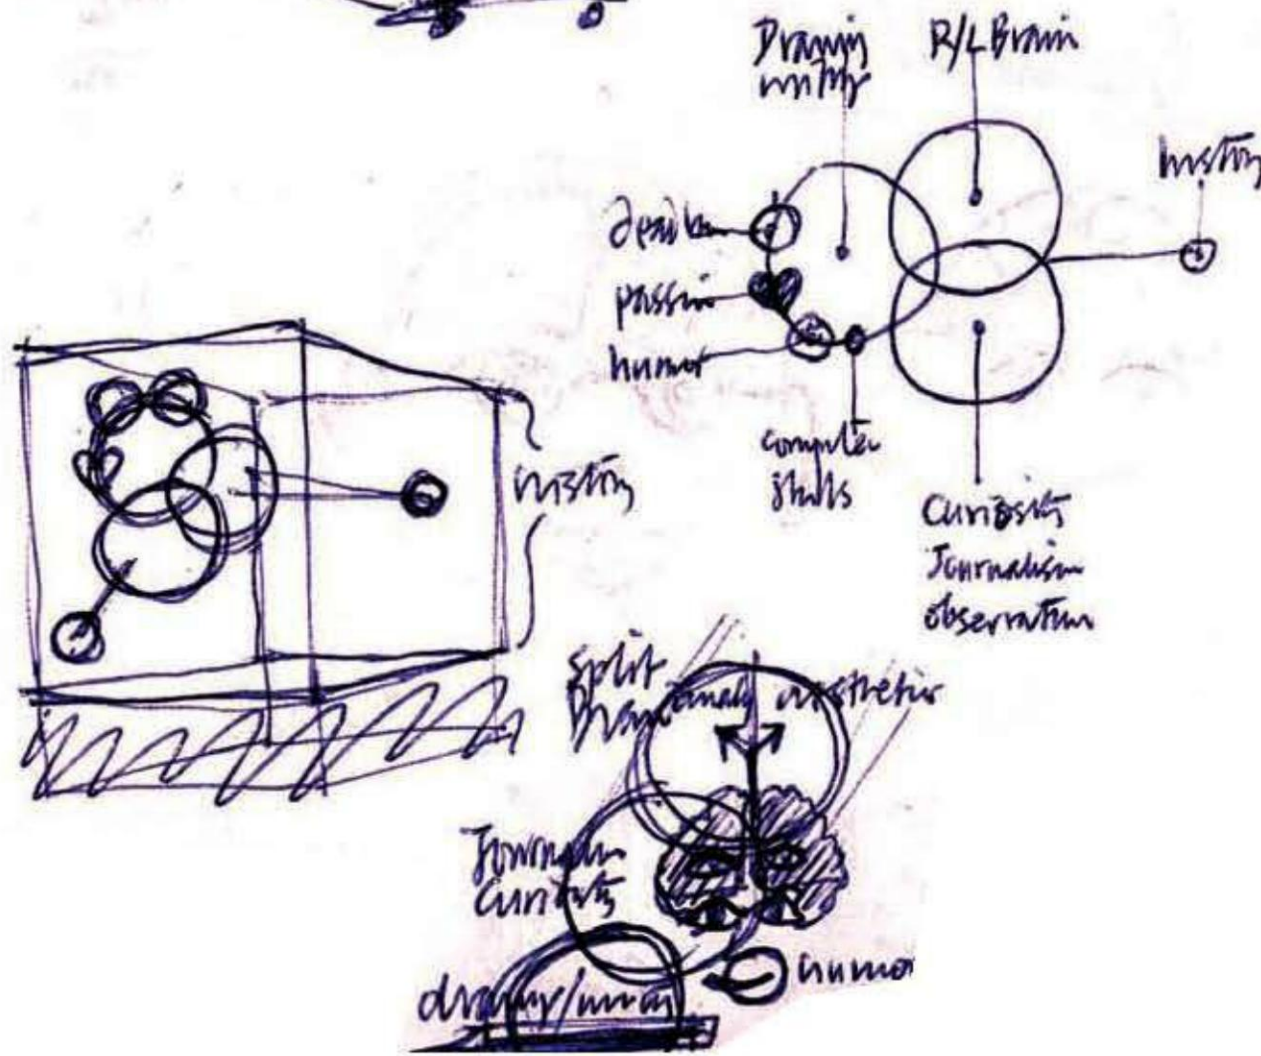 Drawing
writing
R/L Brain
history
passion
humor
computer
skills
Curiosity
Journalism
observation
history
split
Brain
aesthetic
Journalism
Curiosity
drawing/writing
humor